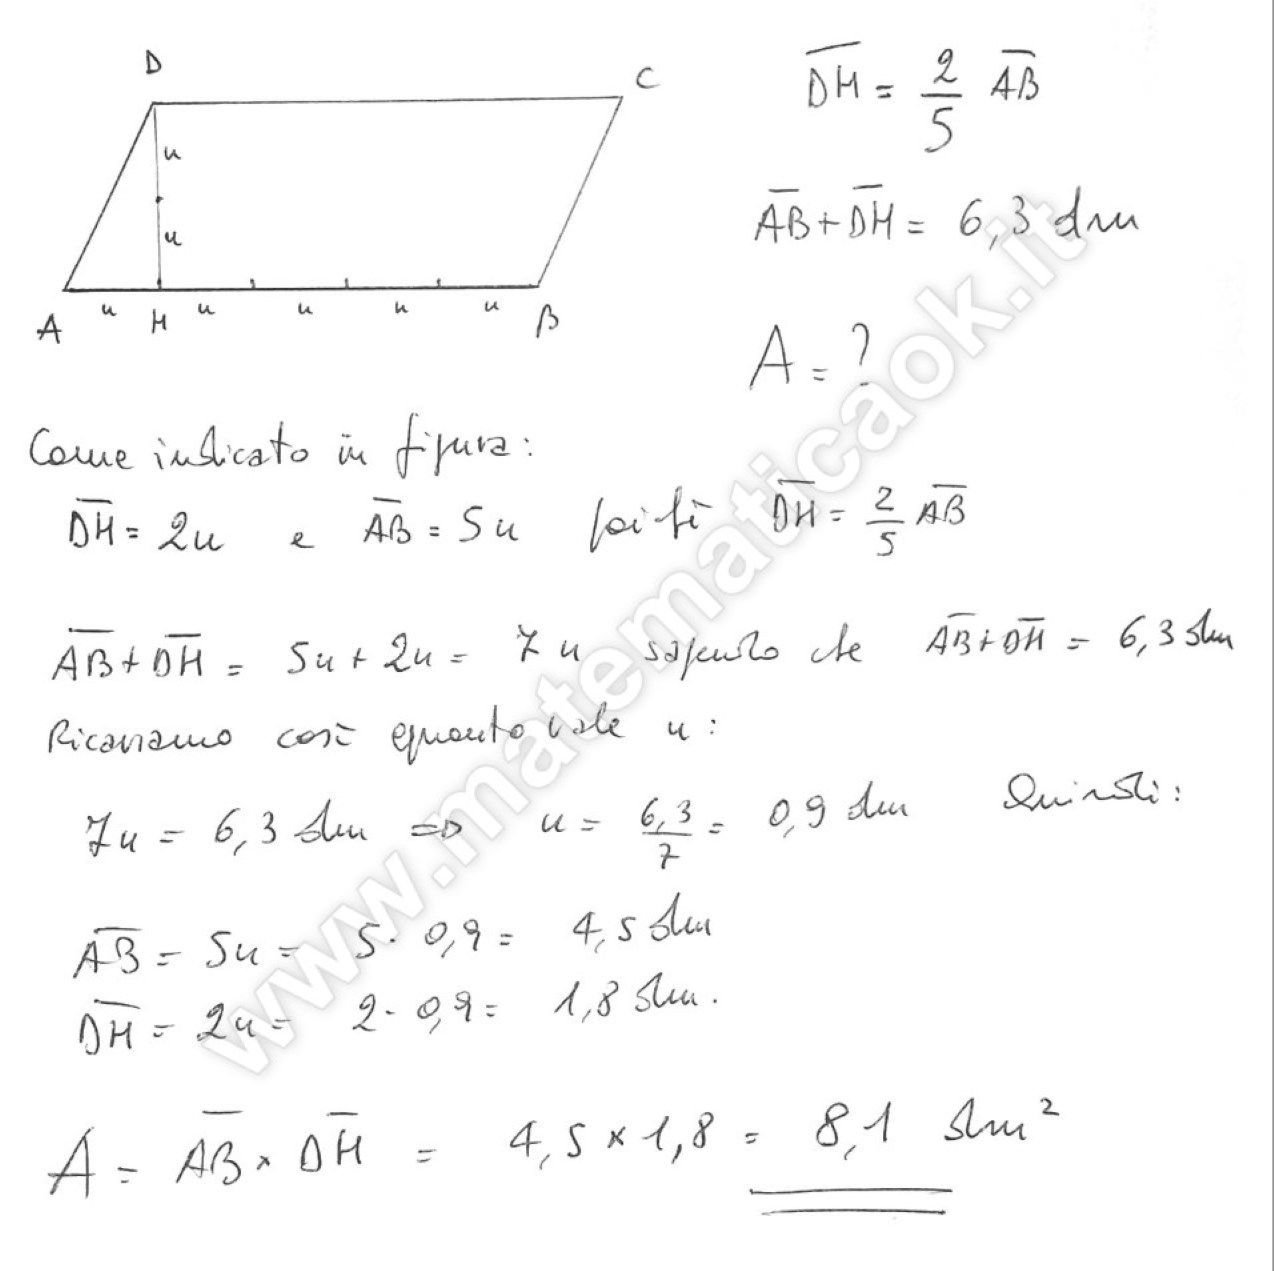 D
C
u
u
A u H u u u u B
D̅H̅ = 2/5 A̅B̅
A̅B̅ + D̅H̅ = 6,3 dm
A = ?
Come indicato in figura:
D̅H̅ = 2u e A̅B̅ = 5u poiché D̅H̅ = 2/5 A̅B̅
A̅B̅ + D̅H̅ = 5u + 2u = 7u sapendo che A̅B̅ + D̅H̅ = 6,3 dm
Ricaviamo così quanto vale u:
7u = 6,3 dm => u = 6,3/7 = 0,9 dm Quindi:
A̅B̅ = 5u = 5 · 0,9 = 4,5 dm
D̅H̅ = 2u = 2 · 0,9 = 1,8 dm.
A = A̅B̅ × D̅H̅ = 4,5 × 1,8 = 8,1 dm²
www.matematicaok.it